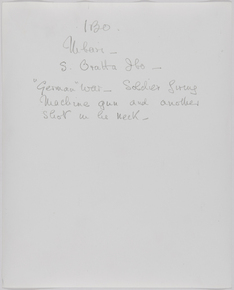 1820.
Urban -
"German" War - Soldier firing
Machine gun and another
shot in the neck -